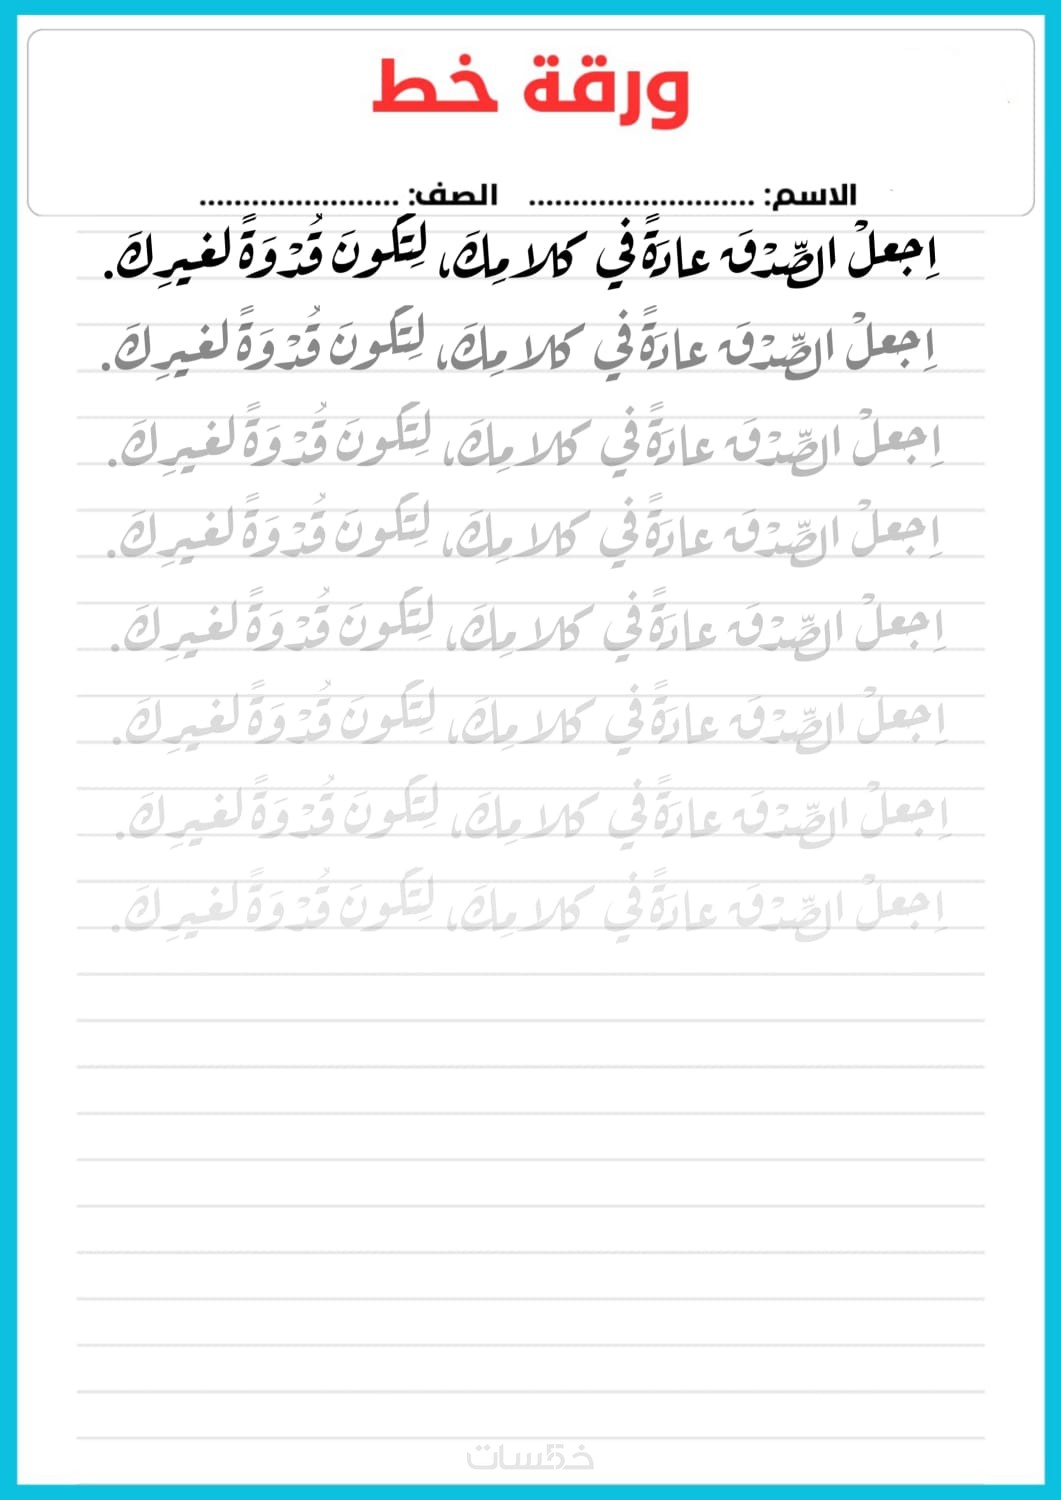 ورقة خط
الاسم: .......................... الصف: .......................
اِجعلْ الصِّدْقَ عادَةً في كلامِكَ، لِتَكونَ قُدْوَةً لغيرِكَ.
اِجعلْ الصِّدْقَ عادَةً في كلامِكَ، لِتَكونَ قُدْوَةً لغيرِكَ.
اِجعلْ الصِّدْقَ عادَةً في كلامِكَ، لِتَكونَ قُدْوَةً لغيرِكَ.
اِجعلْ الصِّدْقَ عادَةً في كلامِكَ، لِتَكونَ قُدْوَةً لغيرِكَ.
اِجعلْ الصِّدْقَ عادَةً في كلامِكَ، لِتَكونَ قُدْوَةً لغيرِكَ.
اِجعلْ الصِّدْقَ عادَةً في كلامِكَ، لِتَكونَ قُدْوَةً لغيرِكَ.
اِجعلْ الصِّدْقَ عادَةً في كلامِكَ، لِتَكونَ قُدْوَةً لغيرِكَ.
اِجعلْ الصِّدْقَ عادَةً في كلامِكَ، لِتَكونَ قُدْوَةً لغيرِكَ.
خمسات